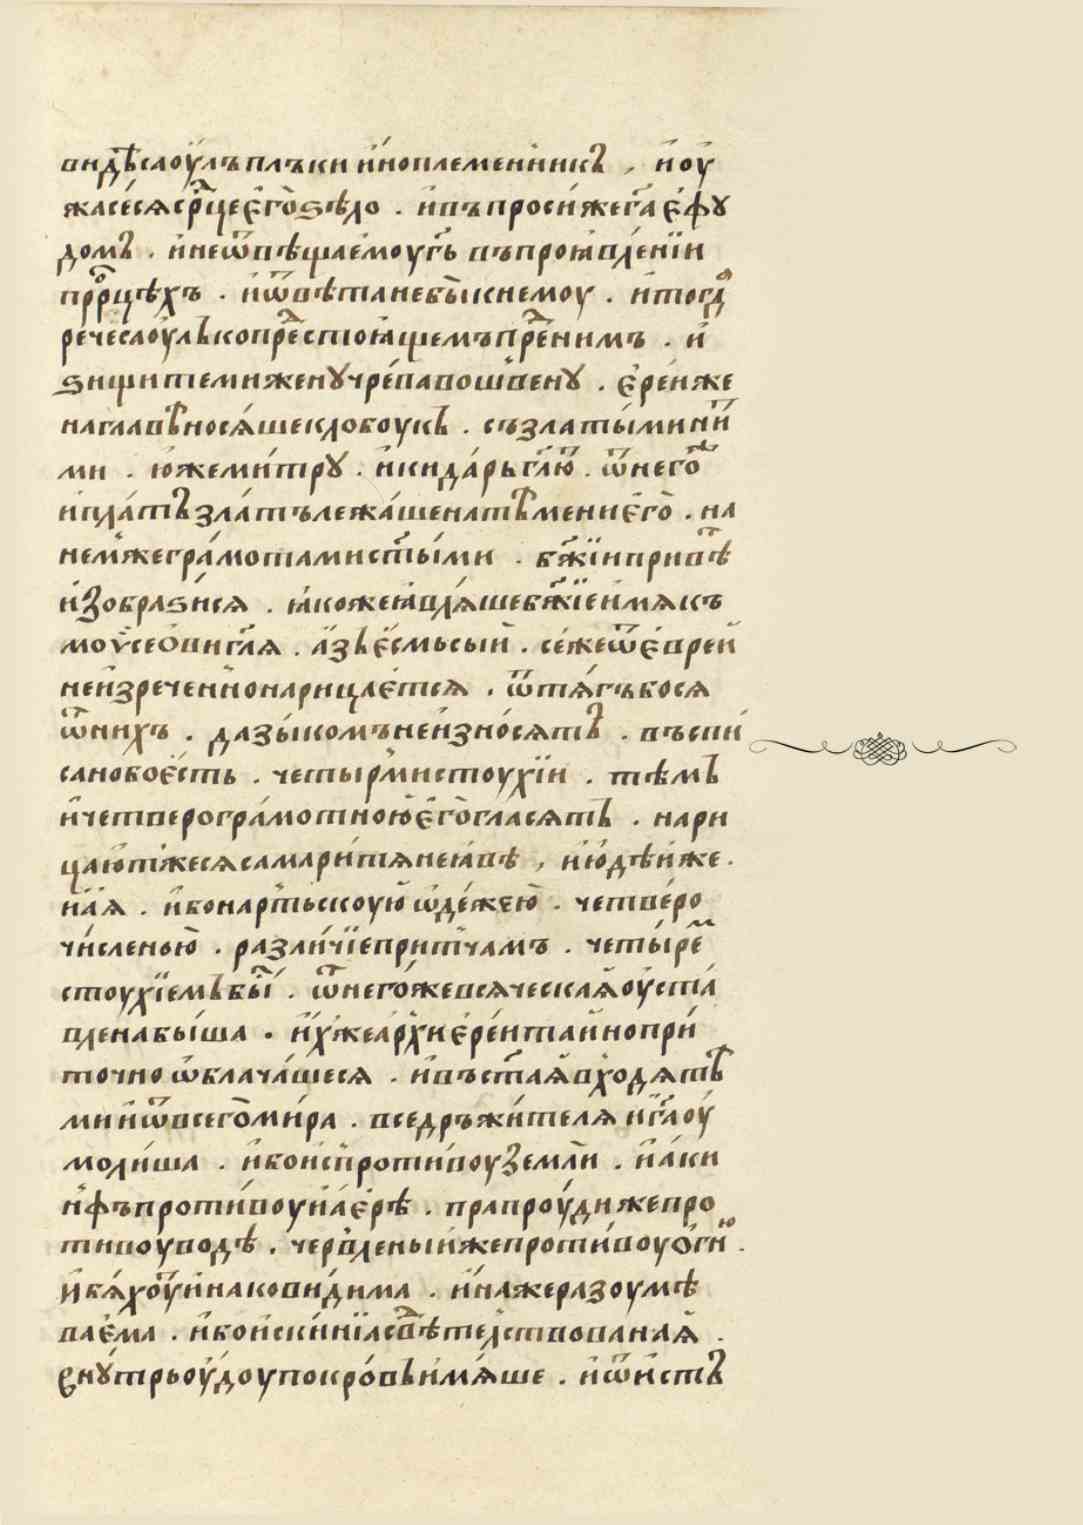 видѣсаоулъплъки иноплеменникъ , иоу
жасесясрⷣцеегоѕѣло . ивъпросижегⷭ҇аефу
домъ . инеѿвѣщаемоугⷭ҇ь въпроꙗвленїи
прⷪ҇рцѣхъ . иѿвѣтанебыкнемоу . итогдⷶ
речесаоулъкопреⷣстоꙗщемъпреⷣнимъ . и
ѕищитеминженꙋчревавошвенꙋ . ерейже
наглавѣносяшеклобоукъ . съзлатыминиⷮ
ми . южемитрꙋ . икидарьглⷢ҇ю . ѿнегоⷤ
иплатъзлатълежашенатѣмениего . на
немжеграмотамистⷭ҇ыми . бжⷭ҇їипривѣⷮ
изобразися . ꙗкожеꙗвляшебжⷭ҇їеимякъ
моѵсеовигⷭ҇ля . азъесмьсый . сежеѿеврей
неизреченнонарицается . ѿтягъбося
ѿнихъ . даꙁыкомънеизносятъ . въспи
санобоесть . четырмистоухїи . тѣмъ
ичетверограмотноюегогласятъ . нари
цаютжесясамаритянеꙗвѣ , июдѣиже .
наꙗ . ибонартьскоую ѡдежею . четверо
численью . различїепритчамъ . четыреⷨ
стоухїемъбыⷭ҇ . ѿнегожевсяческаꙗоуста
вленабыша . ихжеархиерейтайнопри
точно ѡблачашеся . ивъстⷭ҇аꙗвходятъ
мииѿвсегомира . вседръжителя игⷭ҇аоу
молиша . ибоиспротивоуземли . иаки
нфъпротивоуиаерѣ . прапроудижепро
тивоуводѣ . червленыйжепротивоуогнⷽ .
ибяхоуинаковидима . инажеразоумѣ
ваема . ибоискинїасвⷣѣтелствованаꙗ .
внꙋтрьоудоупокровъимяше . иѿистъ